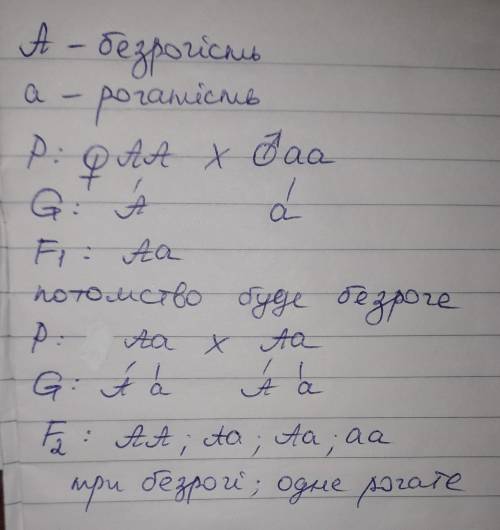 A – безрогість
a – рогатість
P: ♀ AA x ♂ aa
G: A a
F₁: Aa
потомство буде безроге
P: Aa x Aa
G: A a A a
F₂: AA; Aa; Aa; aa
три безрогі; одне рогате